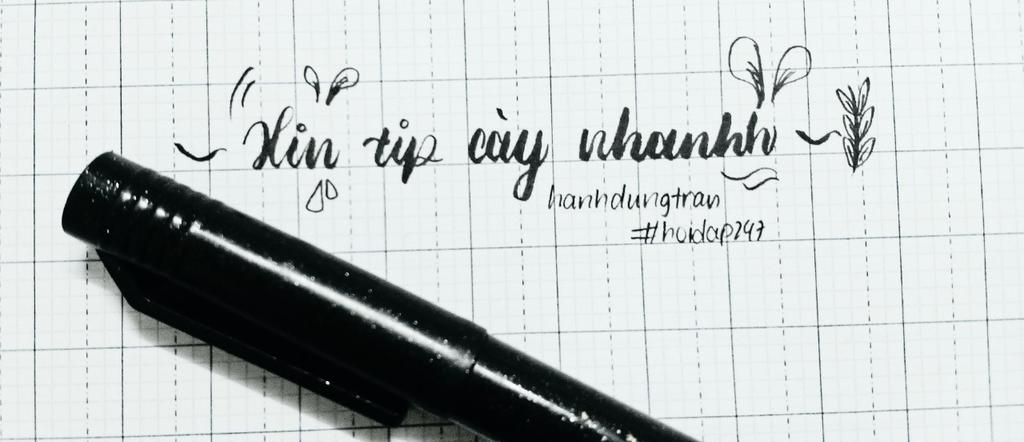 Xin tip cày nhanhh
hanhdungtran
#hoidap247